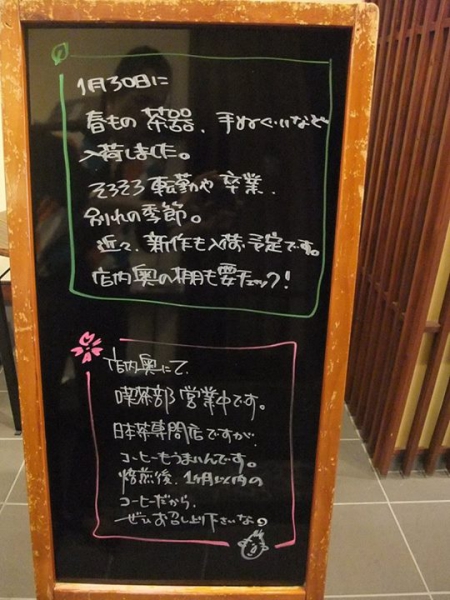 1月30日に
春もの 茶器、手ぬぐいなど
入荷しました。
そろそろ転勤や卒業、
別れの季節。
近々、新作も入荷予定です。
店内奥の棚も要チェック!
店内奥にて、
喫茶部営業中です。
日本茶専門店ですが、
コーヒーもうまいんです。
焙煎後、1ヶ月以内の
コーヒーだから、
ぜひお召し上下さいな。